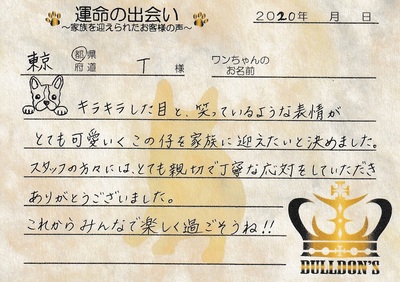 運命の出会い 2020年 月 日
〜家族を迎えられたお客様の声〜
東京 都道府県 T 様 ワンちゃんのお名前
キラキラした目と、笑っているような表情が
とても可愛いくこの仔を家族に迎えたいと決めました。
スタッフの方々には、とても親切で丁寧な応対をしていただき
ありがとうございました。
これからみんなで楽しく過ごそうね!!
BULLDON'S